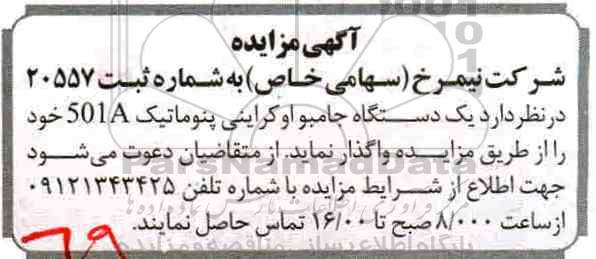 آگهی مزایده
شرکت نیمرخ (سهامی خاص) به شماره ثبت ۲۰۵۵۷
درنظر دارد یک دستگاه جامبو اوکراینی پنوماتیک 501A خود
را از طریق مزایده واگذار نماید. از متقاضیان دعوت می‌شود
جهت اطلاع از شرایط مزایده با شماره تلفن ۰۹۱۲۱۳۴۳۴۲۵
از ساعت ۸/۰۰۰ صبح تا ۱۶/۰۰ تماس حاصل نمایند.
ParsNamadData
۶۹